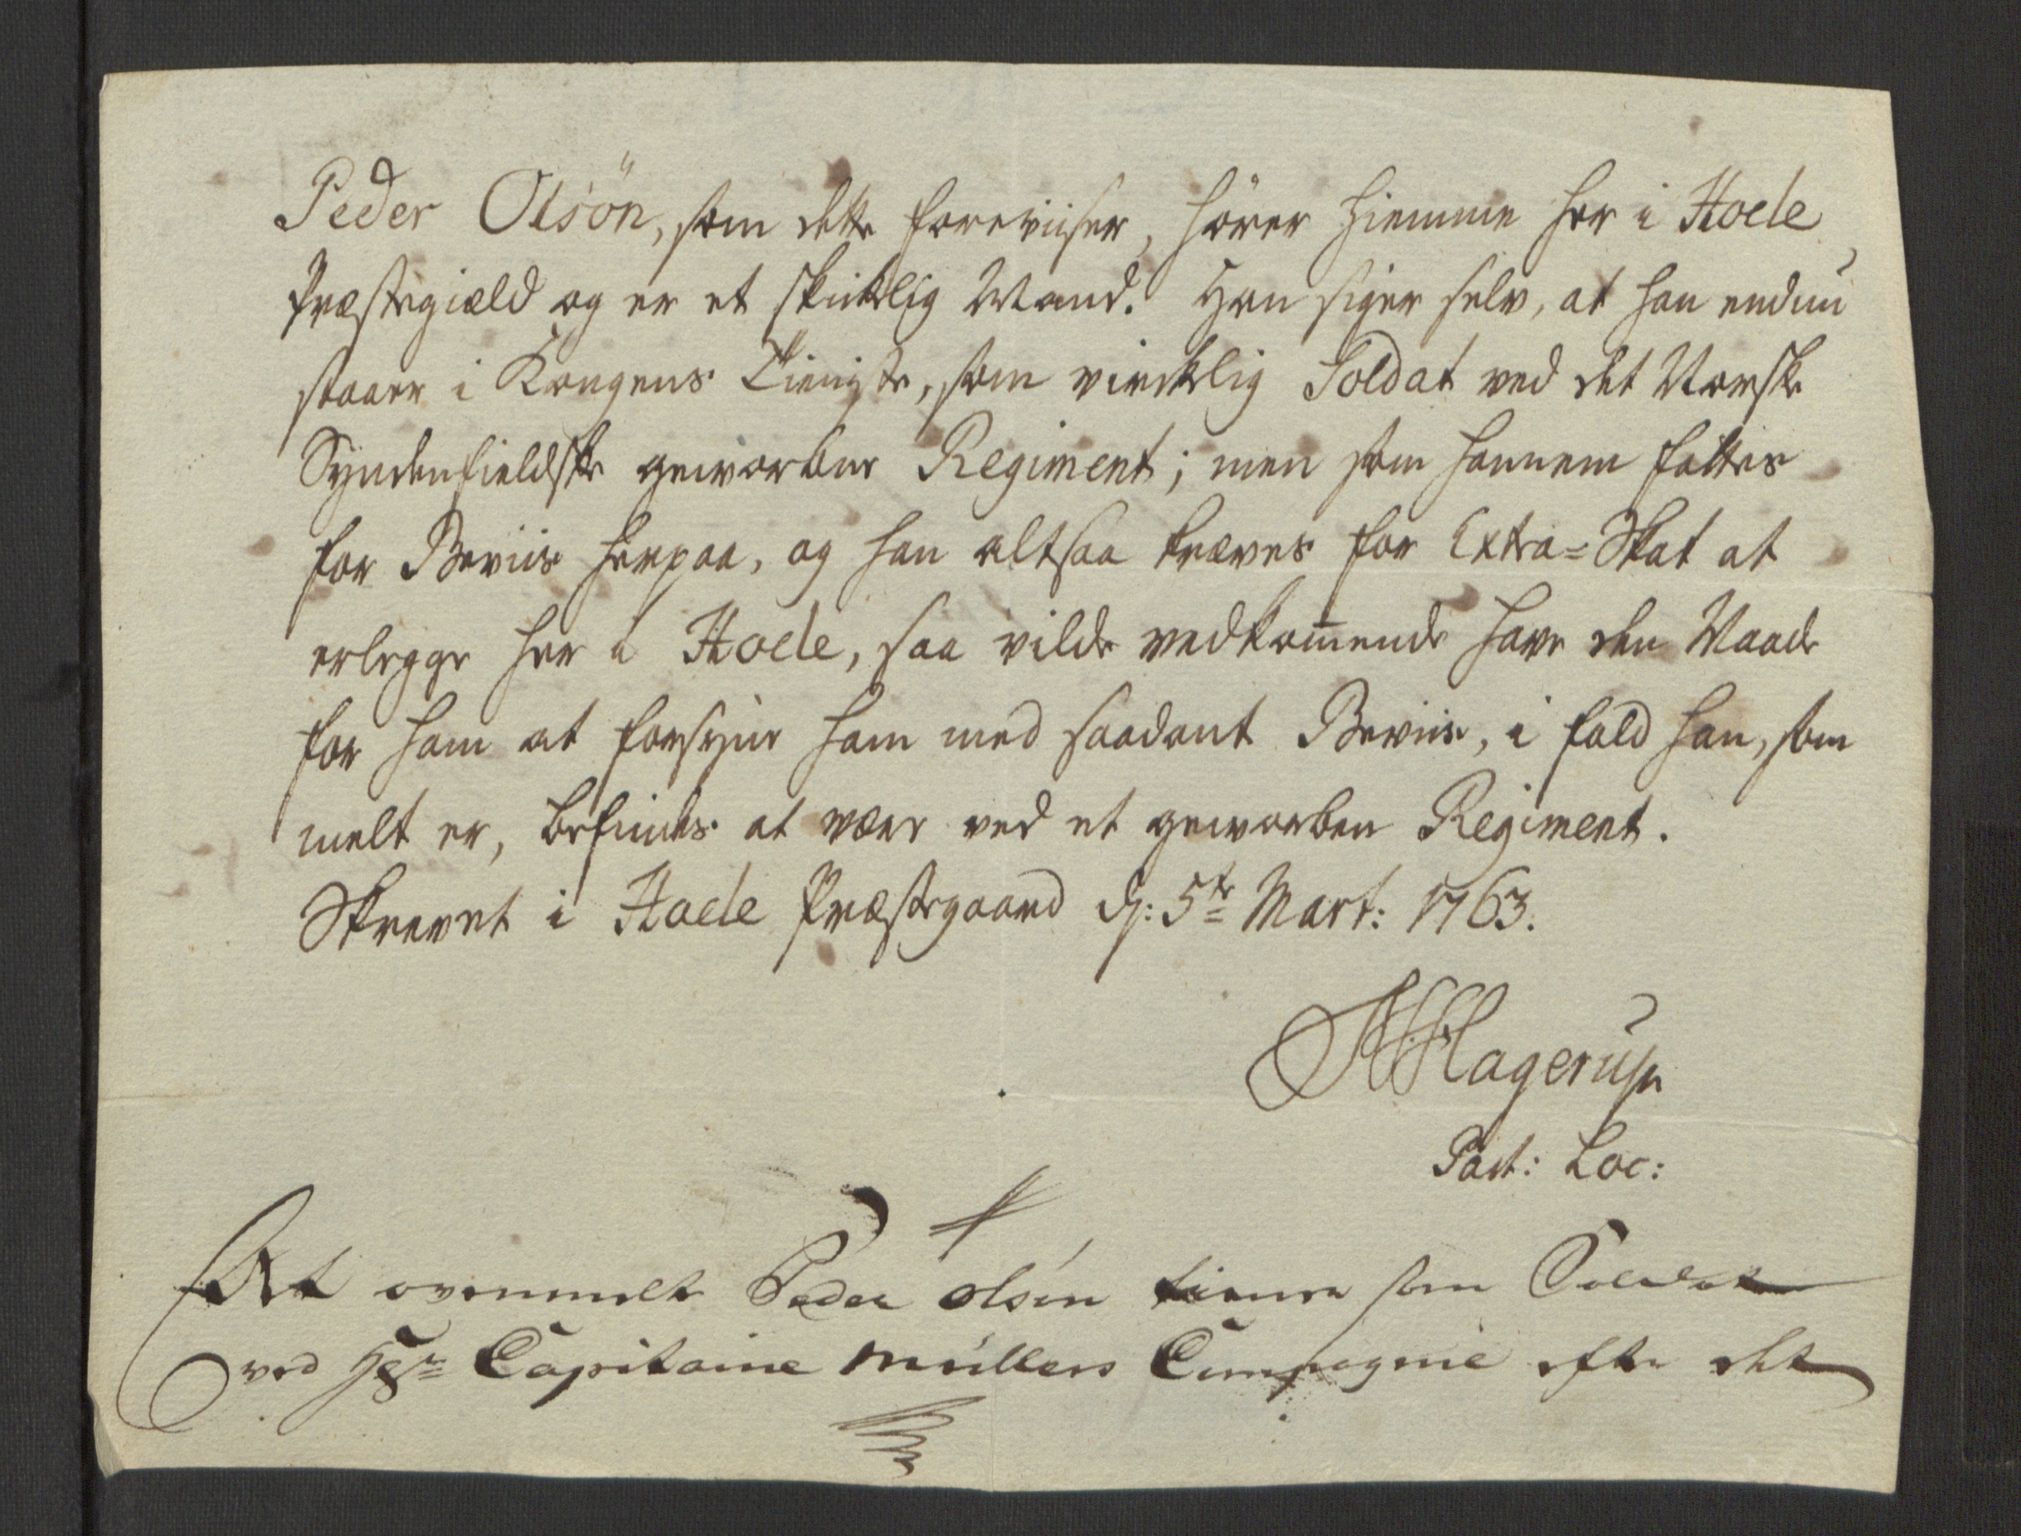 Peder Olsön, som dette foreviiser, hörer hiemme her i Hoele
Præstegiæld og er et skiklig Mand. Han siger selv, at han endnu
staaer i Kongens Tieniste, som vircklig Soldat ved det Norske
Syndenfieldske geworbne Regiment; men som hannem fattes
for Beviis herpaa, og han altsaa kræves for Extra=Skat at
erlegge her i Hoele, saa vilde vedkom̅ende have den Naade
for ham at forsyne ham med saadant Beviis, i fald han, som
melt er, befindes at være ved et geworben Regiment.
Skrevet i Hoele Præstegaard d: 5te Mart: 1763.
H Hagerup
Past: Loc:
At ovenmelte Peder Olsen tiener som Soldat
ved Hr Capitaine Müllers Compagnie efter det